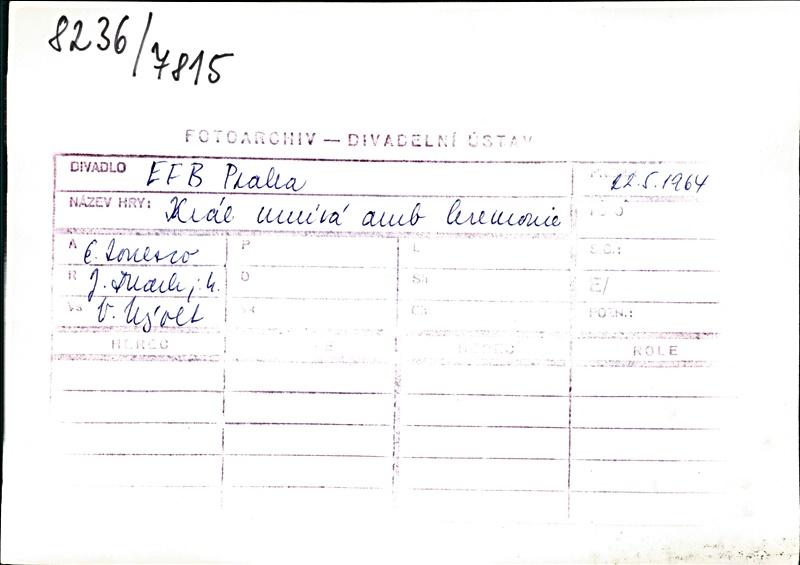 8236/7815
FOTOARCHIV — DIVADELNÍ ÚSTAV
DIVADLO EFB Praha 22.5.1964
NÁZEV HRY: Král umírá anb Ceremonie
A E. Ionesco P L S.C.:
R J. j. h. D Sh E/
V. Nývlt POZN.:
HEREC HEREC ROLE